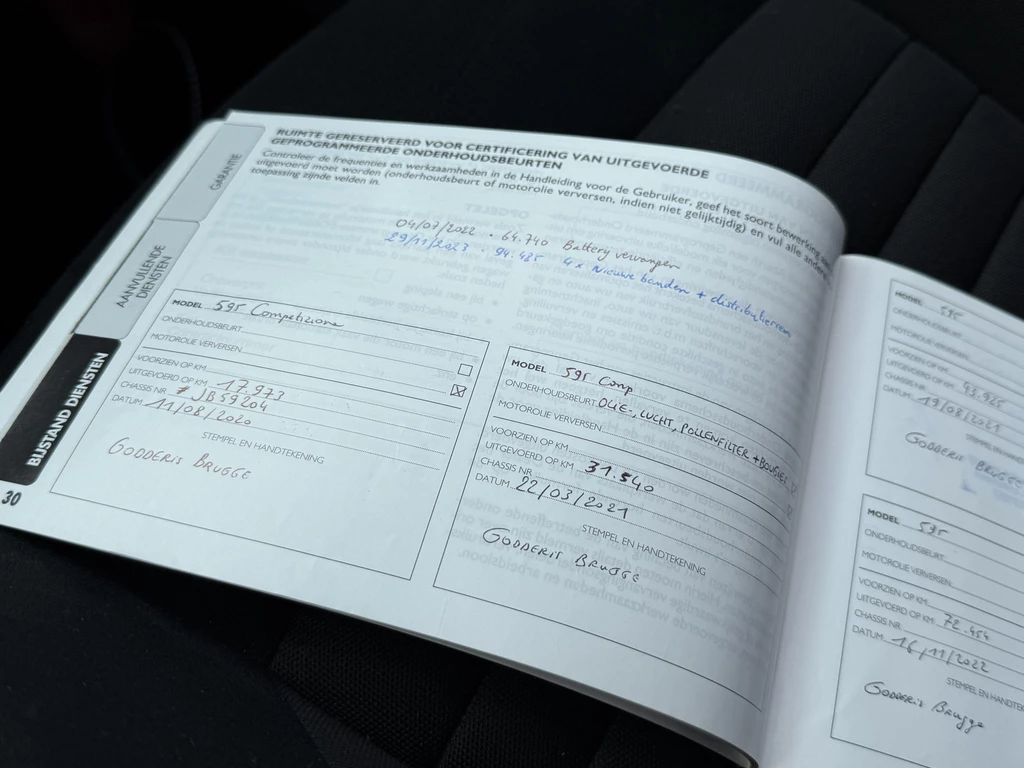 GARANTIE
AANVULLENDE
DIENSTEN
BIJSTAND DIENSTEN
30
RUIMTE GERESERVEERD VOOR CERTIFICERING VAN UITGEVOERDE
GEPROGRAMMEERDE ONDERHOUDSBEURTEN
Controleer de frequenties en werkzaamheden in de Handleiding voor de Gebruiker, geef het soort bewerking
uitgevoerd moet worden (onderhoudsbeurt of motorolie verversen, indien niet gelijktijdig) en vul alle andere
toepassing zijnde velden in.
04/07/2022 · 64.740 Battery vervangen
29/11/2023 · 94.485 4x Nieuwe banden + distributieriem
MODEL 595 Competizione
ONDERHOUDSBEURT
MOTOROLIE VERVERSEN
VOORZIEN OP KM
UITGEVOERD OP KM 17.973
CHASSIS NR # JB59204
DATUM 11/08/2020
STEMPEL EN HANDTEKENING
GODDERIS BRUGGE
MODEL 595 Comp
ONDERHOUDSBEURT OLIE-, LUCHT, POLLENFILTER + BOUGIES
MOTOROLIE VERVERSEN
VOORZIEN OP KM
UITGEVOERD OP KM 31.540
CHASSIS NR
DATUM 22/03/2021
STEMPEL EN HANDTEKENING
GODDERIS BRUGGE
MODEL 595
ONDERHOUDSBEURT
MOTOROLIE VERVERSEN
VOORZIEN OP KM
UITGEVOERD OP KM 43.925
CHASSIS NR
DATUM 19/08/2021
STEMPEL EN
GODDERIS BRUGGE
MODEL 595
ONDERHOUDSBEURT
MOTOROLIE VERVERSEN
VOORZIEN OP KM
UITGEVOERD OP KM 72.454
CHASSIS NR
DATUM 16/11/2022
STEMPEL EN HANDTEKEN
Godderis Brugge